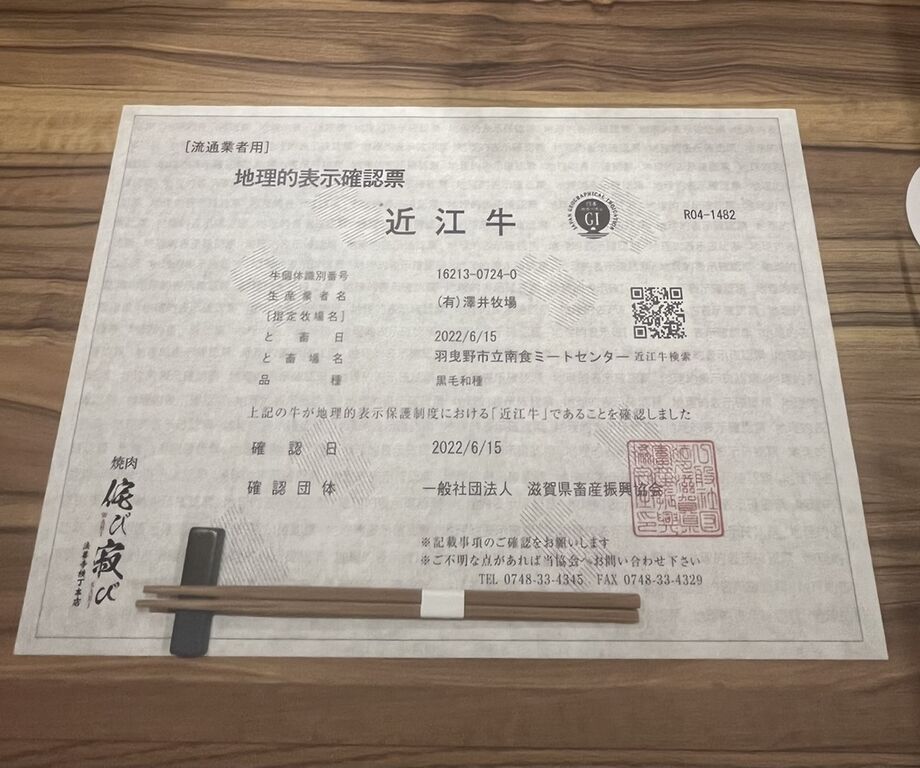 [流通業者用]
地理的表示確認票
近江牛
JAPAN GEOGRAPHICAL INDICATION
GI
R04-1482
牛個体識別番号 16213-0724-0
生産業者名 (有)澤井牧場
[指定牧場名]
と畜日 2022/6/15
と畜場名 羽曳野市立南食ミートセンター
近江牛検索
品種 黒毛和種
上記の牛が地理的表示保護制度における「近江牛」であることを確認しました
確認日 2022/6/15
確認団体 一般社団法人 滋賀県畜産振興協会
※記載事項のご確認をお願いします
※ご不明な点があれば当協会へお問い合わせ下さい
TEL 0748-33-4345 FAX 0748-33-4329
焼肉
侘び寂び
法善寺横丁本店